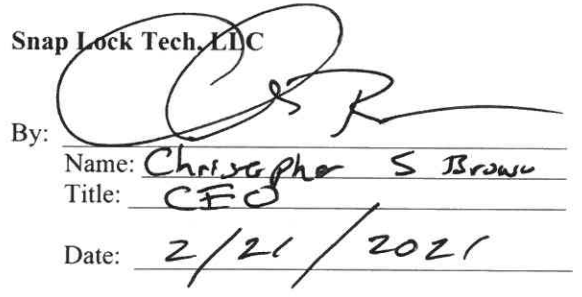 Snap Lock Tech, LLC
By:
Name: Christopher S Brown
Title: CEO
Date: 2/21/2021